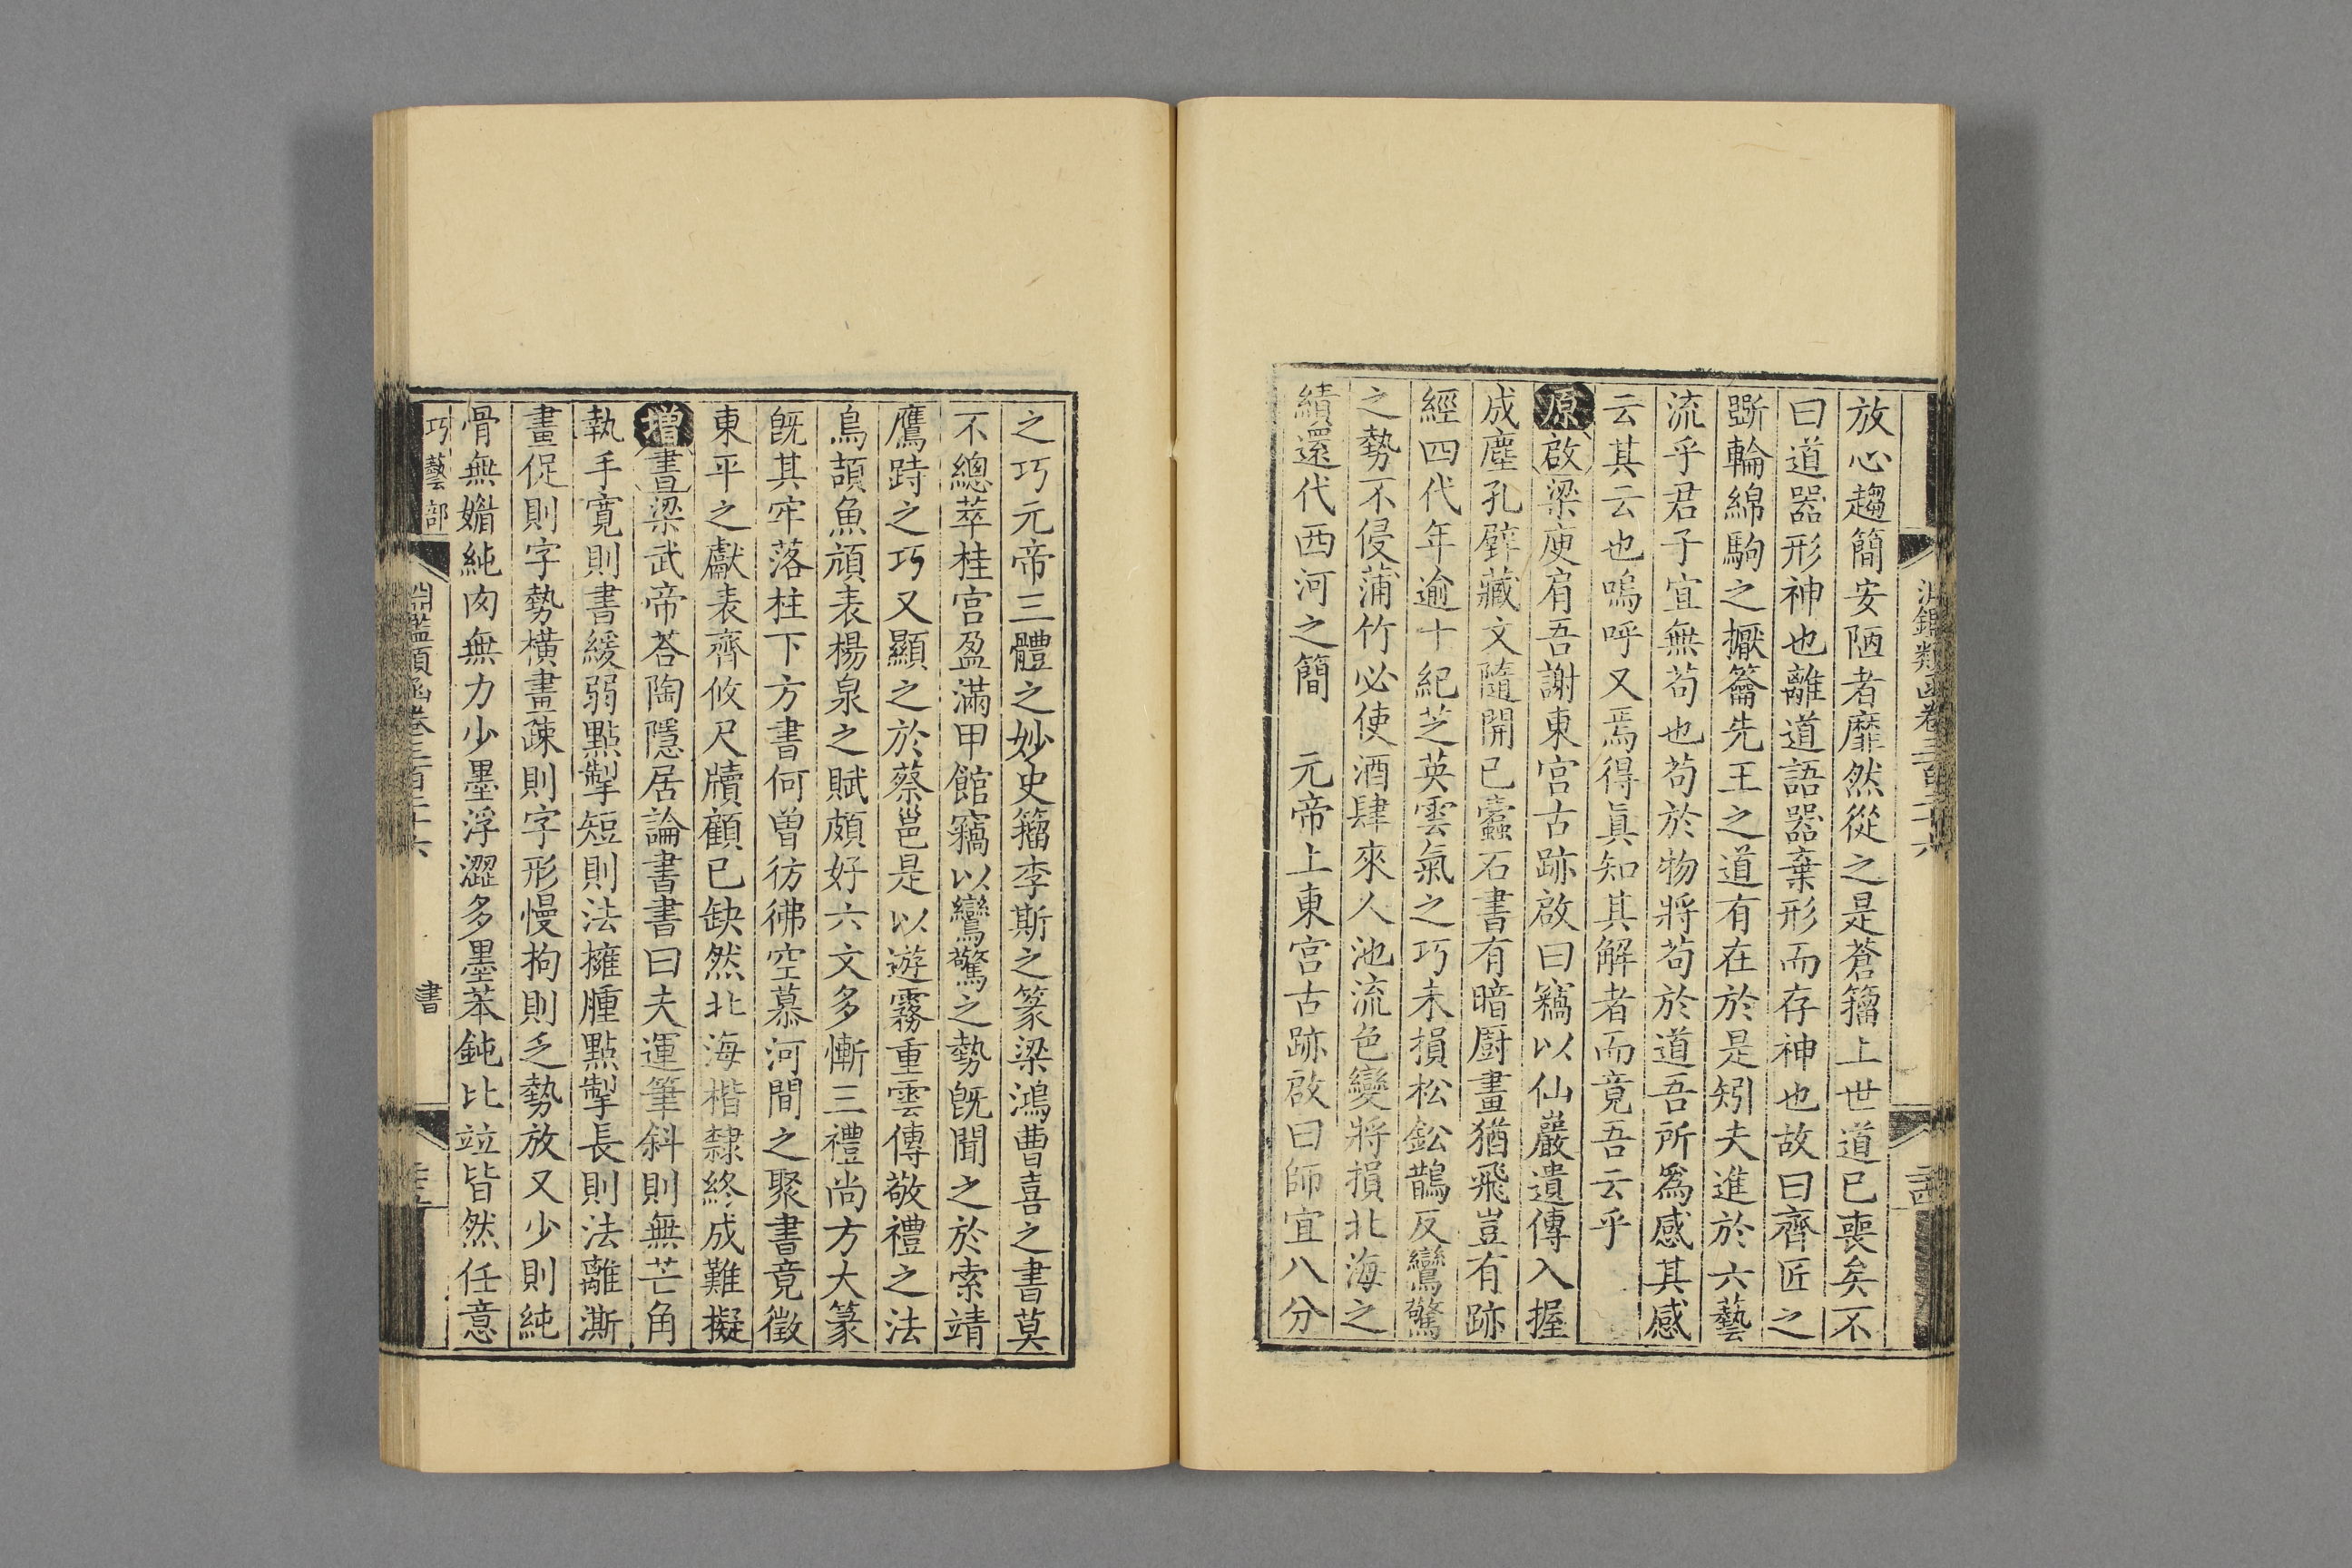 放心趨簡安陋者靡然從之是蒼籀上世道已喪矣不
曰道器形神也離道語器棄形而存神也故曰齊匠之
斲輪綿駒之擫籥先王之道有在於是矧夫進於六藝
流乎君子宜無苟也苟於物將苟於道吾所爲感其感
云其云也嗚呼又焉得眞知其解者而竟吾云乎
原啟梁庾肩吾謝東宮古跡啟曰竊以仙巖遺傳入握
成塵孔壁藏文隨開已蠹石書有暗廚畫猶飛豈有跡
經四代年逾十紀芝英雲氣之巧未損松鈆鵲反鸞驚
之勢不侵蒲竹必使酒肆來人池流色變將損北海之
績還代西河之簡　元帝上東宮古跡啟曰師宜八分
之巧元帝三體之妙史籀李斯之篆梁鴻曹喜之書莫
不總萃桂宮盈滿甲館竊以鸞驚之勢旣聞之於索靖
鷹跱之巧又顯之於蔡邕是以遊霧重雲傳敬禮之法
鳥頡魚頏表楊泉之賦頗好六文多慚三禮尚方大篆
旣其牢落柱下方書何曾彷彿空慕河間之聚書竟徵
東平之獻表齊攸尺牘顧已缺然北海楷隸終成難擬
增書梁武帝荅陶隱居論書書曰夫運筆斜則無芒角
執手寬則書緩弱點掣短則法擁腫點掣長則法離澌
畫促則字勢橫畫疎則字形慢拘則乏勢放又少則純
骨無媚純肉無力少墨浮澀多墨苯鈍比竝皆然任意
巧藝部
淵鑑類函卷三百二十六
書